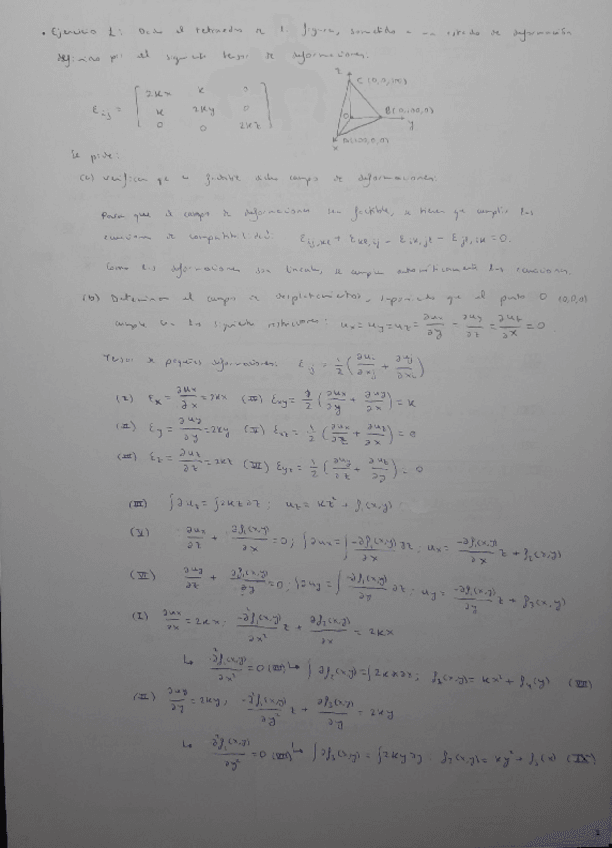 • Ejercicio 1: Dado el tetraedro de la figura, sometido a un estado de deformación
definido por el siguiente tensor de deformaciones.
εij = [ 2Kx K 0
K 2Ky 0
0 0 2Kz ]
z C (0,0,100)
O B (0,100,0) y
x
Se pide:
(a) Verificar que es factible dicho campo de deformaciones.
Para que el campo de deformaciones sea factible, se tienen que cumplir las
ecuaciones de compatibilidad: εij,kl + εkl,ij - εik,jl - εjl,ik = 0.
Como las deformaciones son lineales, se cumplen automáticamente las ecuaciones.
(b) Determinar el campo de desplazamientos, suponiendo que el punto O (0,0,0)
cumple con las siguientes restricciones: ux = uy = uz = ∂ux/∂y = ∂uy/∂z = ∂uz/∂x = 0.
Tensor de pequeñas deformaciones: εij = 1/2 (∂ui/∂xj + ∂uj/∂xi)
(I) εx = ∂ux/∂x = 2Kx (IV) εxy = 1/2 (∂ux/∂y + ∂uy/∂x) = K
(II) εy = ∂uy/∂y = 2Ky (V) εxz = 1/2 (∂ux/∂z + ∂uz/∂x) = 0
(III) εz = ∂uz/∂z = 2Kz (VI) εyz = 1/2 (∂uy/∂z + ∂uz/∂y) = 0
(III) ∫∂uz = ∫2Kz ∂z ; uz = Kz² + f1(x,y)
(V) ∂ux/∂z + ∂f1(x,y)/∂x = 0 ; ∫∂ux = ∫ -∂f1(x,y)/∂x ∂z ; ux = -∂f1(x,y)/∂x z + f2(x,y)
(VI) ∂uy/∂z + ∂f1(x,y)/∂y = 0 ; ∫∂uy = ∫ -∂f1(x,y)/∂y ∂z ; uy = -∂f1(x,y)/∂y z + f3(x,y)
(I) ∂ux/∂x = 2Kx ; -∂²f1(x,y)/∂x² z + ∂f2(x,y)/∂x = 2Kx
↳ ∂²f1(x,y)/∂x² = 0 (VII) ↳ ∫∂f2(x,y) = ∫2Kx ∂x ; f2(x,y) = Kx² + f4(y) (VIII)
(II) ∂uy/∂y = 2Ky ; -∂²f1(x,y)/∂y² z + ∂f3(x,y)/∂y = 2Ky
↳ ∂²f1(x,y)/∂y² = 0 ↳ ∫∂f3(x,y) = ∫2Ky ∂y ; f3(x,y) = Ky² + f5(x) (IX)